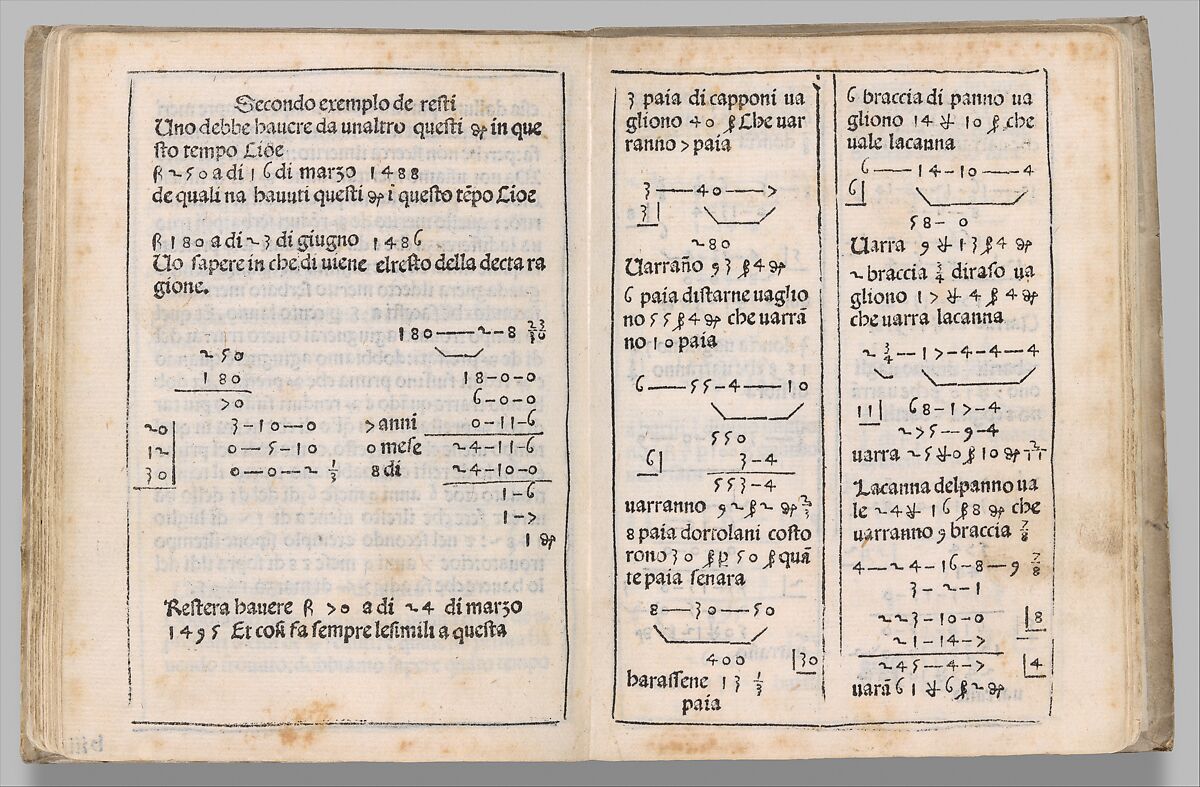 Secondo exemplo de resti
Uno debbe hauere da unaltro questi ꝺ in que
sto tempo Cioe
ß 250 a di 16 di marzo 1488
de quali na hauuti questi ꝺ ĩ questo tẽpo Cioe
ß 180 a di 23 di giugno 1486
Uo sapere in che di uiene elresto della decta ra
gione.
180—2-8 23/30
250
180 18-0-0
70 6-0-0
20 3-10-0 7 anni 0-11-6
12 0-5-10 0 mese 24-11-6
30 0-0-2 1/3 8 di 24-10-0
1-6
1-7
1 ꝺ
Restera hauere ß 70 a di 24 di marzo
1495 Et cosi fa sempre lesimili a questa
3 paia di capponi ua
gliono 40 ß Che uar
ranno 7 paia
3—40—7
3
280
Uarrãno 93 ß 4 ꝺ
6 paia distarne uaglio
no 55 ß 4 ꝺ che uarrã
no 10 paia
6—55-4—10
550
6 3-4
553-4
uarranno 92 ß 2 ꝺ 2/3
8 paia dortolani costo
rono 30 ß p̱ 50 ß quã
te paia senara
8—30—50
400 30
harassene 13 1/3
paia
6 braccia di panno ua
gliono 14 ₶ 10 ß che
uale lacanna
6—14-10—4
6
58-0
Uarra 9 ₶ 13 ß 4 ꝺ
2 braccia 3/4 diraso ua
gliono 17 ₶ 4 ß 4 ꝺ
che uarra lacanna
2 3/4—17-4-4—4
11 68-17-4
275-9-4
uarra 25 ₶ 0 ß 10 ꝺ
Lacanna delpanno ua
le 24 ₶ 16 ß 8 ꝺ che
uarranno 9 braccia 7/8
4—24-16-8—9 7/8
3-2-1
223-10-0 8
21-14-7
245-4-7 4
uarã 61 ₶ 6 ß 2 ꝺ